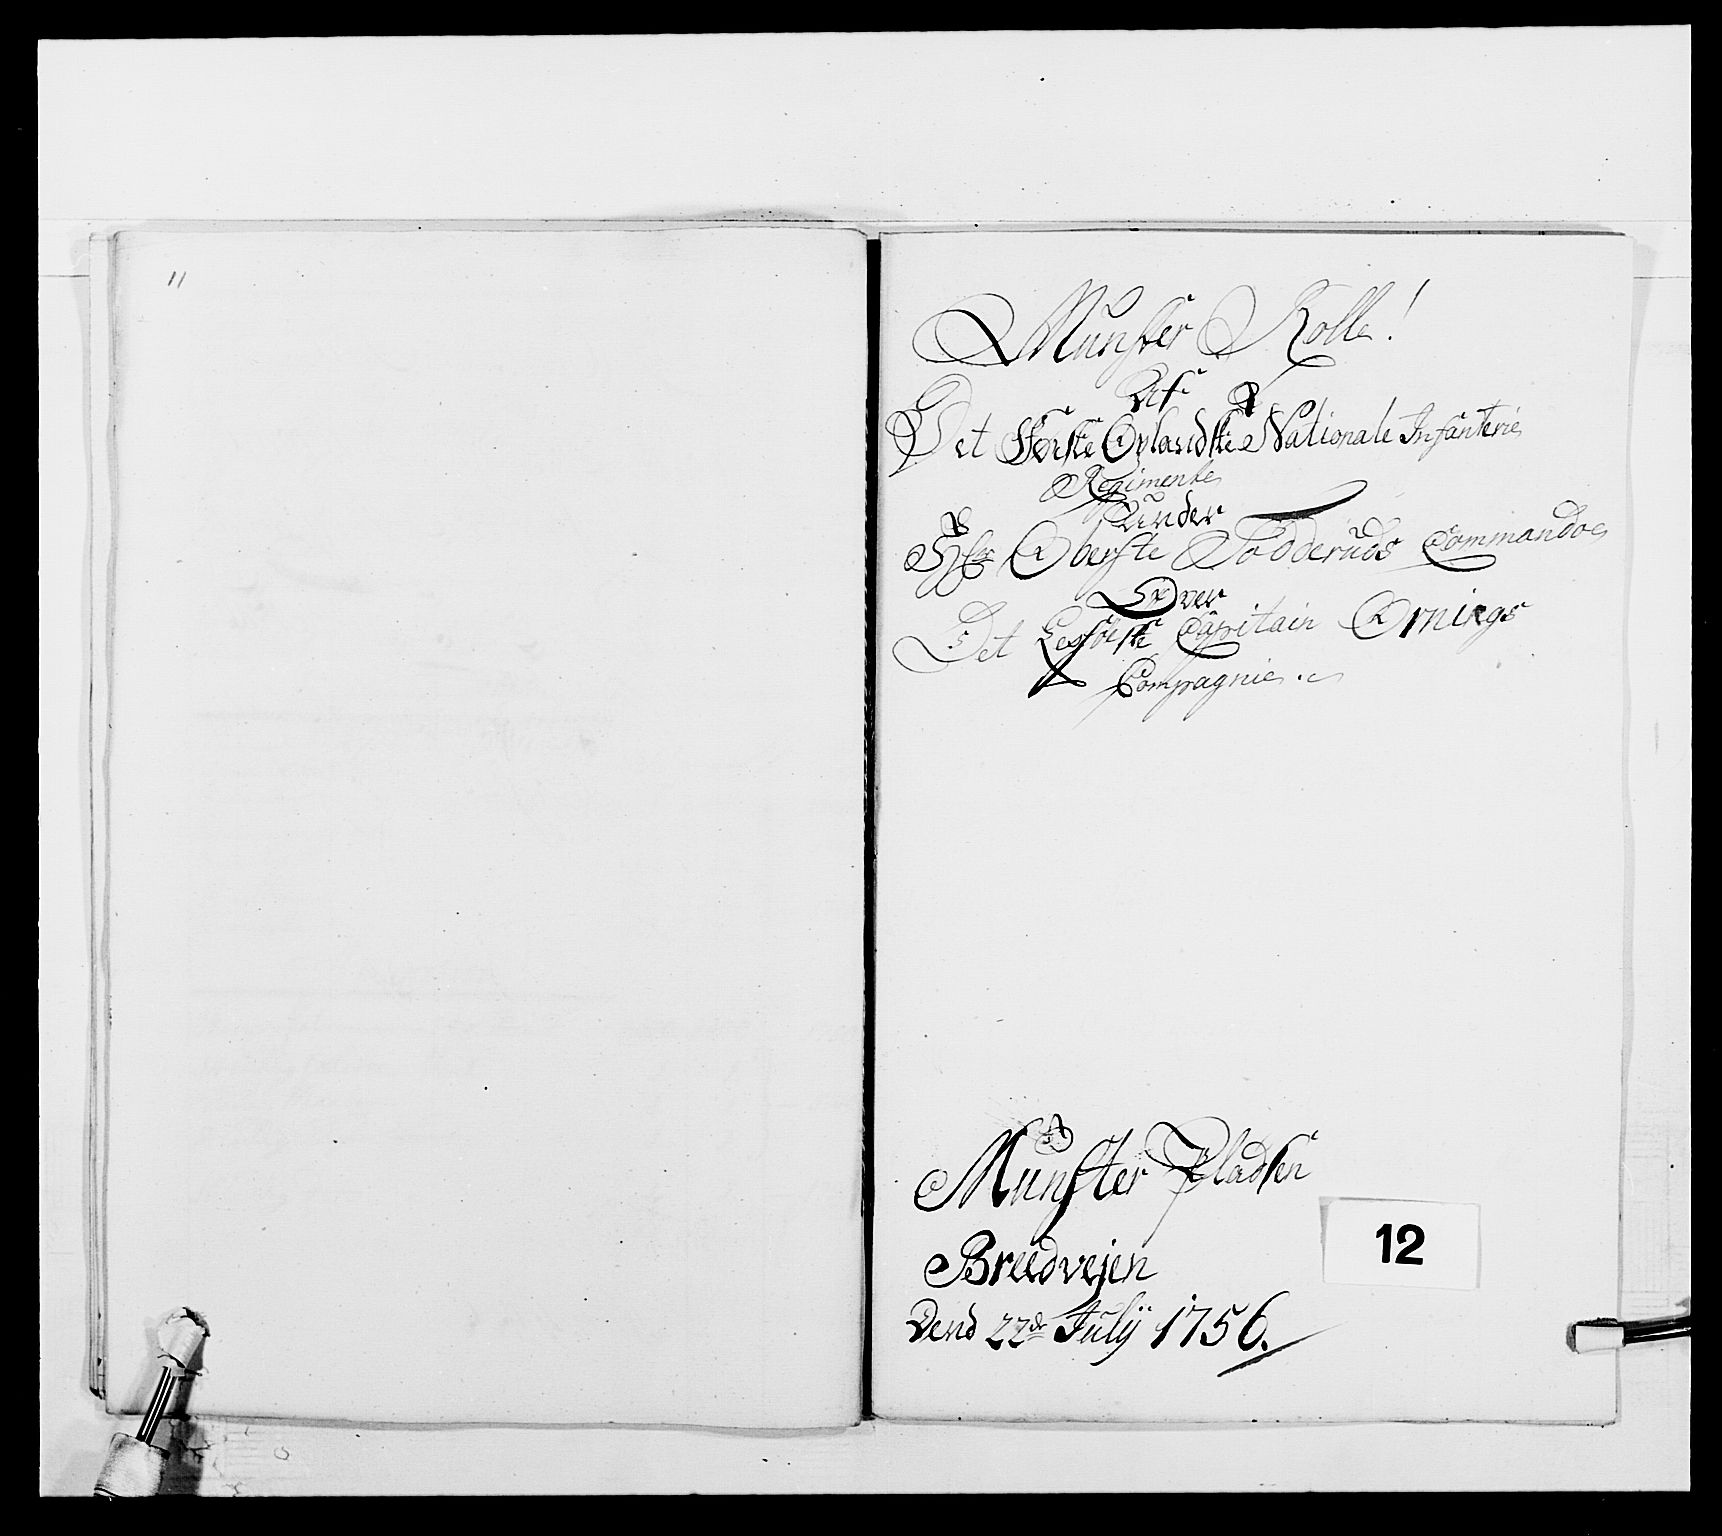 11
Munster Rolle!
Af
Det Første Oplandske Nationale Infanterie
Regimente
Under
Hr Oberste Todderuds Commandoe
Over
Det Capitain Ornings
Compagnie.
Munster Pladsen
Breedvejen
Dend 22de Julÿ 1756.
12